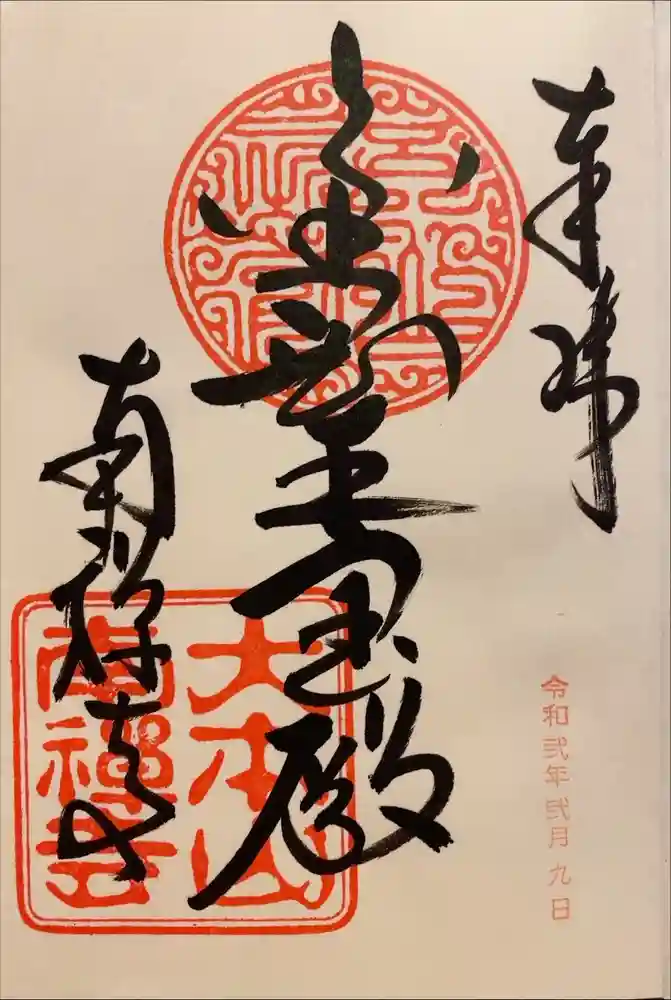 奉拝
令和弐年弐月九日
金剛王宝殿
南禅寺
大本山
南禪寺